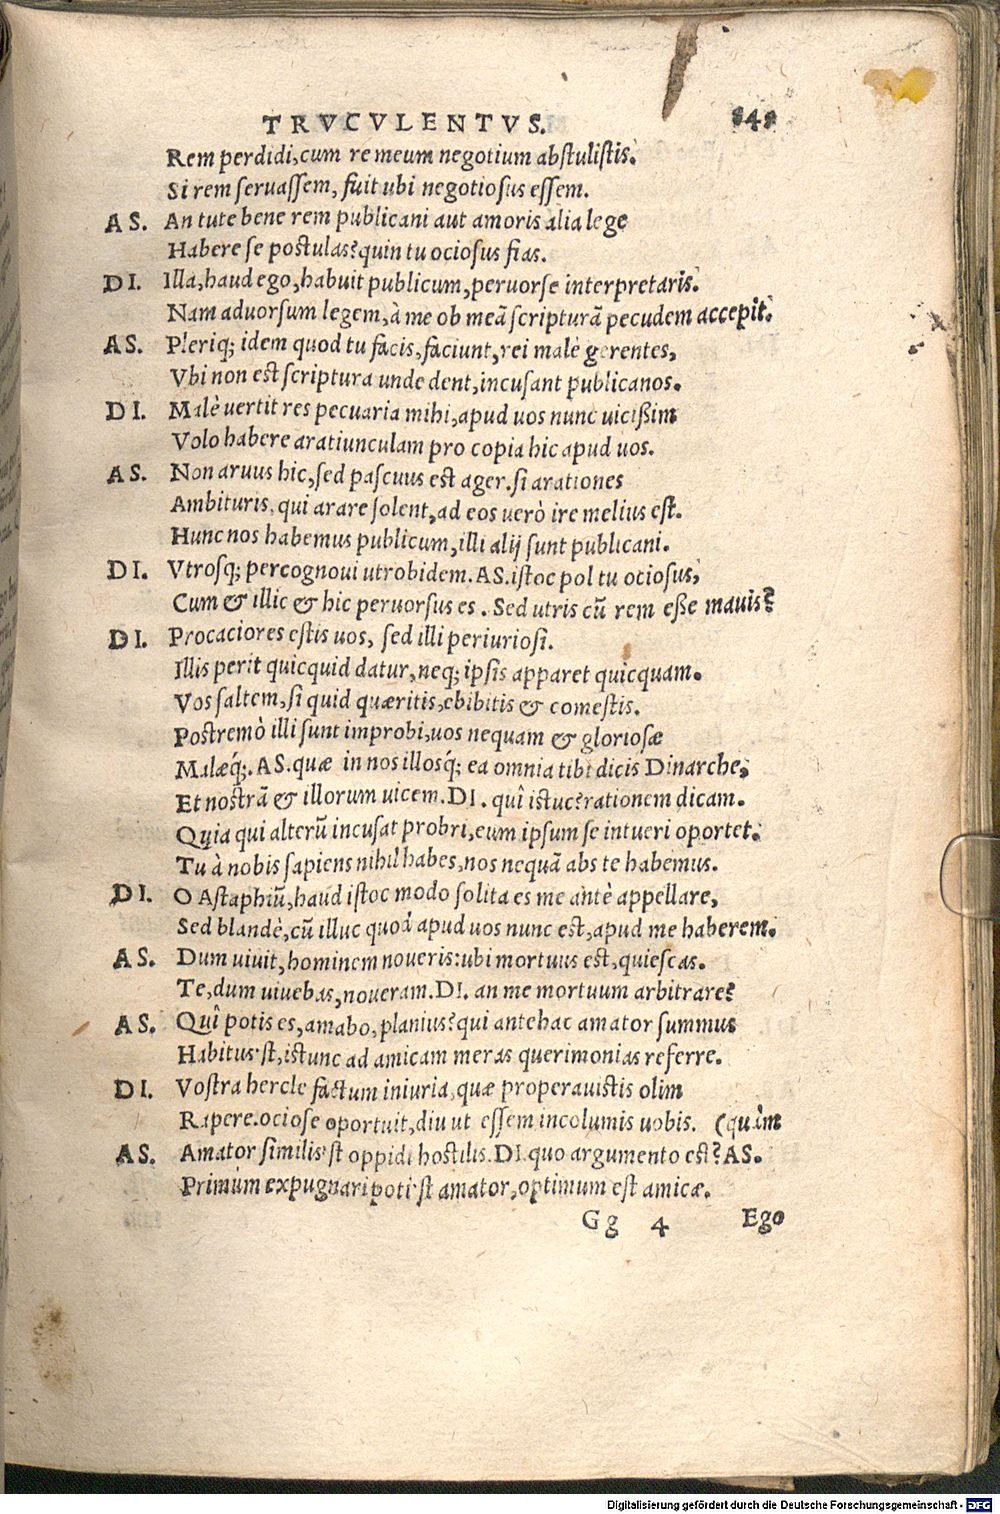 TRVCVLENTVS. 841
Rem perdidi, cum re meum negotium abstulistis.
Si rem seruassem, fuit ubi negotiosus essem.
AS. An tute bene rem publicani aut amoris alia lege
Habere se postulas? quin tu ociosus fias.
DI. Illa, haud ego, habuit publicum, peruorse interpretaris.
Nam aduorsum legem, à me ob meã scripturã pecudem accepit.
AS. Pleriq; idem quod tu facis, faciunt, rei malè gerentes,
Vbi non est scriptura unde dent, incusant publicanos.
DI. Malè uertit res pecuaria mihi, apud uos nunc uicißim
Volo habere aratiunculam pro copia hic apud uos.
AS. Non aruus hic, sed pascuus est ager. si arationes
Ambituris, qui arare solent, ad eos uerò ire melius est.
Hunc nos habemus publicum, illi alij sunt publicani.
DI. Vtrosq; percognoui utrobidem. AS. istoc pol tu ociosus,
Cum & illic & hic peruorsus es. Sed utris cũ rem eße mauis?
DI. Procaciores estis uos, sed illi periuriosi.
Illis perit quicquid datur, neq; ipsis apparet quicquam.
Vos saltem, si quid quæritis, ebibitis & comestis.
Postremò illi sunt improbi, uos nequam & gloriosæ
Malæq́;. AS. quæ in nos illosq́; ea omnia tibi dicis Dinarche,
Et nostrã & illorum uicem. DI. quî istuc? rationem dicam.
Quia qui alterũ incusat probri, eum ipsum se intueri oportet.
Tu à nobis sapiens nihil habes, nos nequã abs te habemus.
DI. O Astaphiũ, haud istoc modo solita es me antè appellare,
Sed blandè, cũ illuc quod apud uos nunc est, apud me haberem.
AS. Dum uiuit, hominem noueris: ubi mortuus est, quiescas.
Te, dum uiuebas, noueram. DI. an me mortuum arbitrare?
AS. Quî potis es, amabo, planius? qui antehac amator summus
Habitus'st, istunc ad amicam meras querimonias referre.
DI. Vostra hercle factum iniuria, quæ properauistis olim
Rapere. ociose oportuit, diu ut essem incolumis uobis. (quàm
AS. Amator similis'st oppidi hostilis. DI. quo argumento est? AS.
Primùm expugnari poti'st amator, optimum est amicæ.
Gg 4 Ego
Digitalisierung gefördert durch die Deutsche Forschungsgemeinschaft - DFG